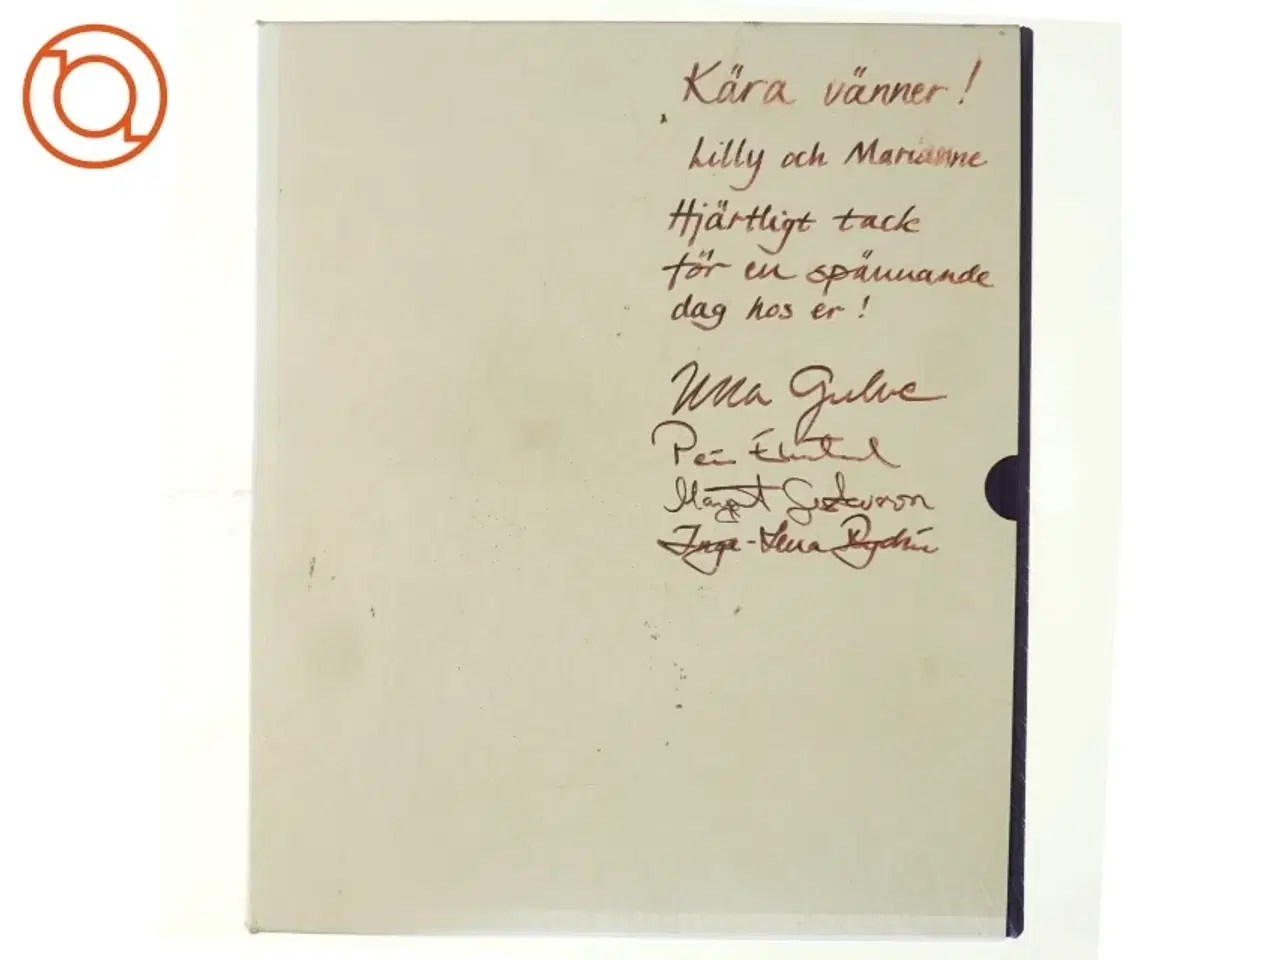 Kära vänner!
Lilly och Marianne
Hjärtligt tack
för en spännande
dag hos er!
Ulla Gulve
Margit Gustavsson
Inga-Lena Rydin